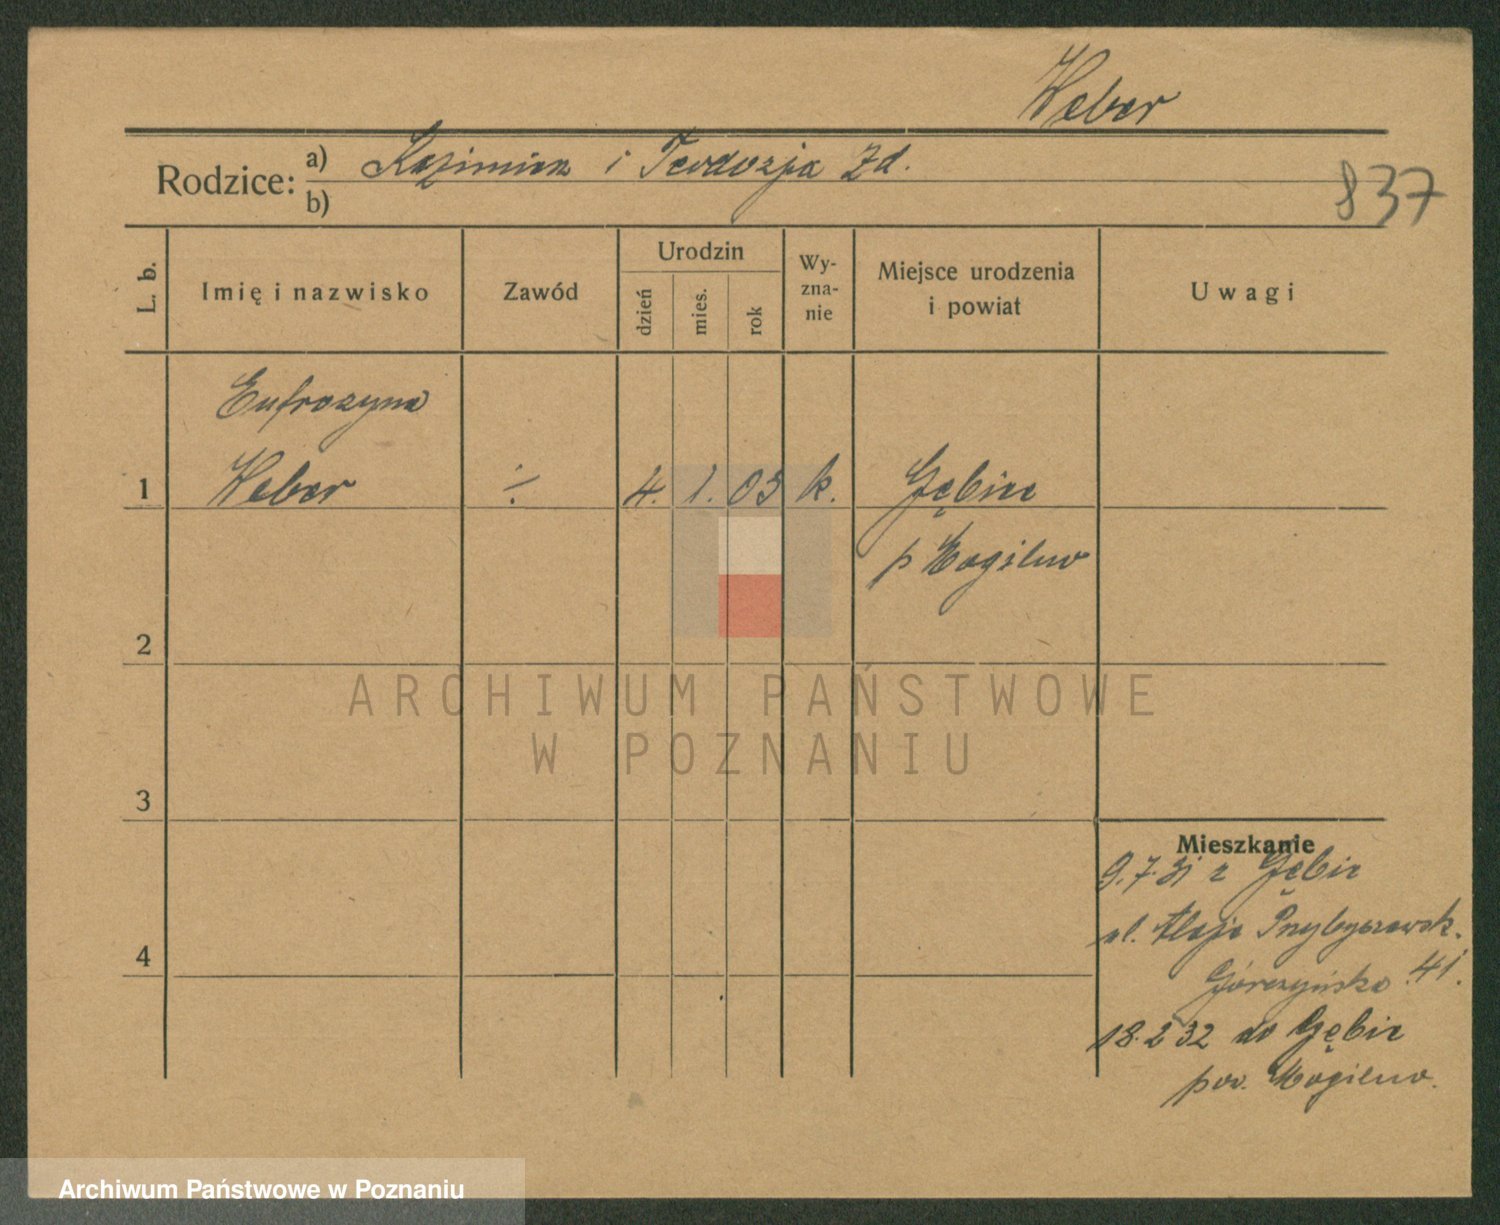 Weber
Rodzice: a) Kazimierz i Teodozja Zd.
b)
837
L. b.
Imię i nazwisko
Zawód
Urodzin
dzień
mies.
rok
Wy-
zna-
nie
Miejsce urodzenia
i powiat
Uwagi
Eufrozyna
1 Weber ÷ 4. 1. 03 k. Gębice
p Mogilno
2
3
4
Mieszkanie
9.7.31 z Gębic
ul. Aleja Przybyszewsk.
Górczyńska 41.
18.2 32 do Gębic
pow. Mogilno.
ARCHIWUM PAŃSTWOWE
W POZNANIU
Archiwum Państwowe w Poznaniu